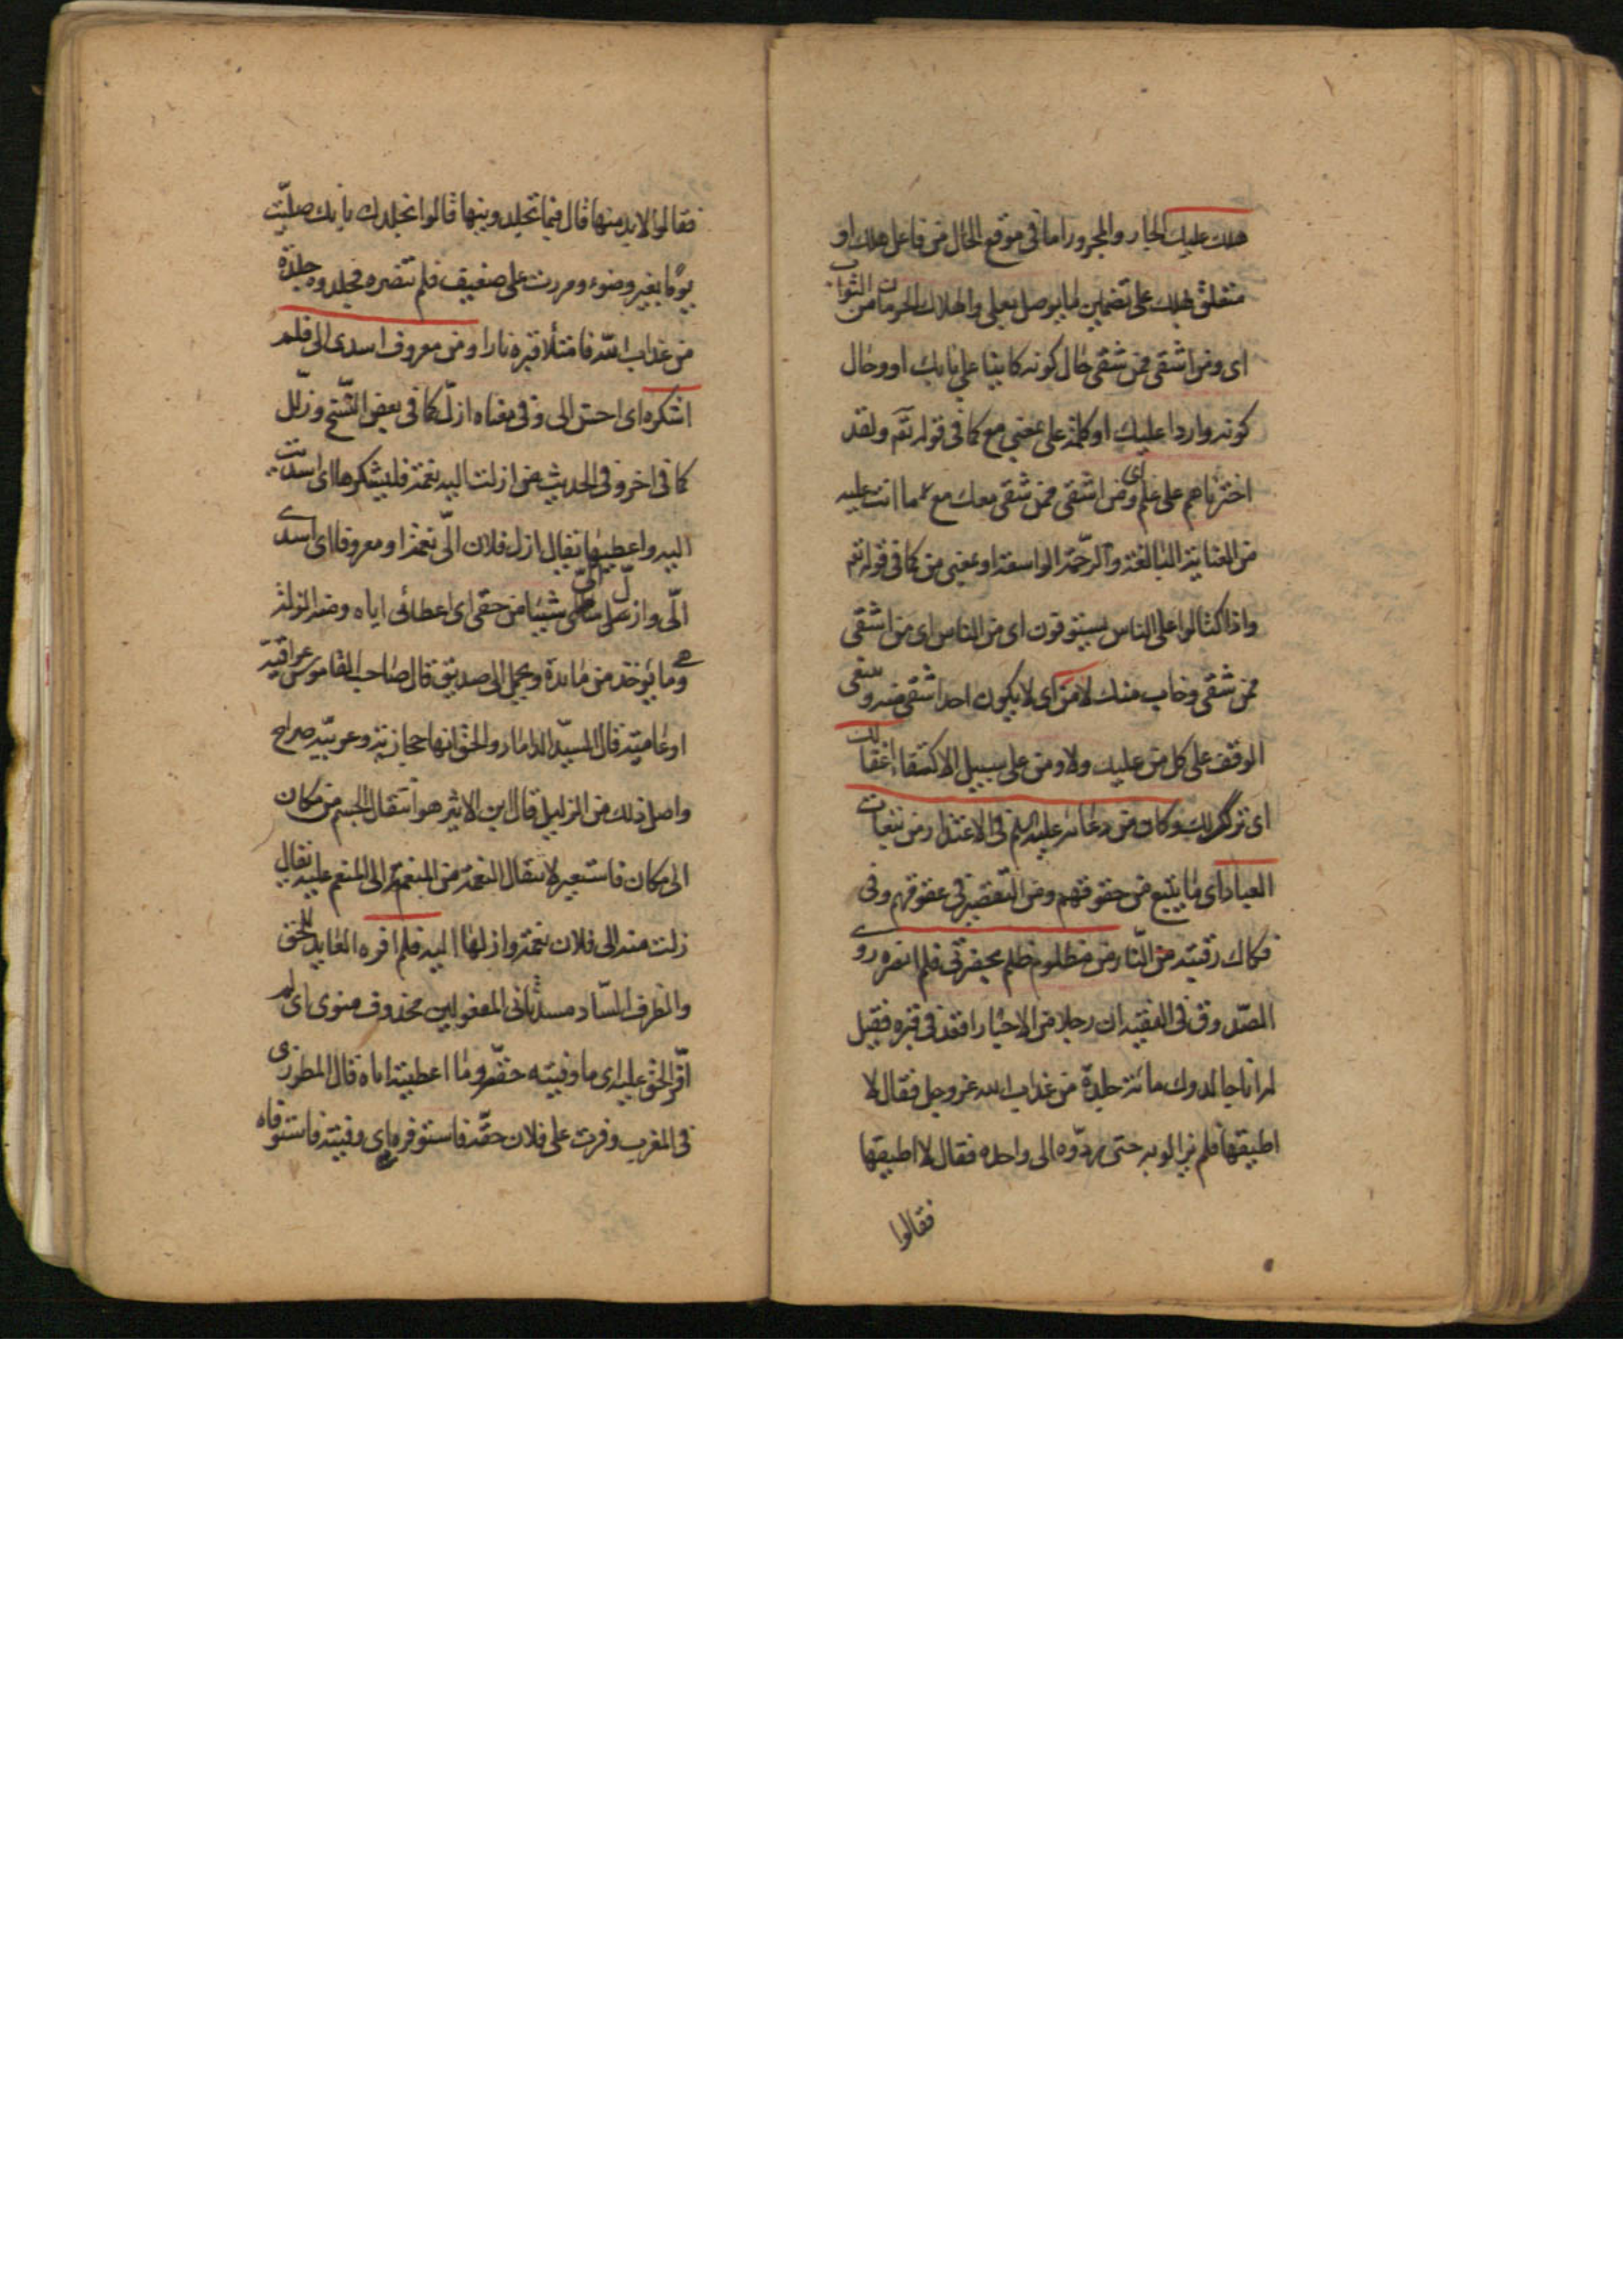 هلك عليك الجار والمجرور اما في موقع الحال من فاعل هلك او
متعلق بهلك على تضمين ما يوصل بعلى والهلاك الحرمان من الثواب
اى ومن اشقى ممن شقى حال كونه كاينا على بابك او وحال
كونه واردا عليك او كلمة على بمعنى مع كما في قوله تعم ولقد
اخترناهم على علم اى ومن اشقى ممن شقى معك مع ما انت عليه
من العناية البالغة والرحمة الواسعة او بمعنى من كما في قوله تعم
واذا كتالوا على الناس يستوفون اى من الناس اى من اشقى
ممن شقى وخاب منك لا من اى لا يكون احد اشقى منه وينبغى
الوقف على كل من عليك ولا ومن على سبيل الاكتفا لك
اى وكان من دعائه عليه السلم في الاعتذار من تبعات
العباد اى ما يتبع من حقوقهم ومن التقصير في حقوقهم وفى
فكاك رقبته من النار من مظلوم ظلم بحضرتى فلم انصره روى
الصدوق في الفقيه ان رجلا من الاحبار اقعد في قبره فقيل
له انا جالدوك مائة جلدة من عذاب الله عز وجل فقال لا
اطيقها فلم يزالوا به حتى ردوه الى واحده فقال لا اطيقها
فقالوا
فقالوا لا بد منها قال فيما تجلدونيها قالوا نجلدك بانك صليت
يوما بغير وضوء ومررت على ضعيف فلم تنصره فجلدوه جلدة
من عذاب الله فامتلأ قبره نارا ومن معروف اسدى الى فلم
اشكره اى احسن الى وفى معناه ازل كما في بعض النسخ وزلل
كما في اخر وفى الحديث من ازلت اليه نعمة فليشكرها اى اسديت
اليه واعطيها يقال ازل فلان الى نعمة او معروفا اى اسدى
الى وازل الى شيئا من حقى اى اعطانى اياه ومنه الزلة
وهى ما يؤخذ من مائدة ويحمل الى صديق قال صاحب القاموس عراقية
او عامية قال السيد الداماد والحق انها حجازية وعربية صراح
واصل ذلك من الزليل قال ابن الاثير هو انتقال الجسم من مكان
الى مكان فاستعير لانتقال النعمة من المنعم الى المنعم عليه يقال
زلت منه الى فلان نعمة وازلها اليه فلم افره العايد للحق
والظرف الساد مسد ثانى المفعولين محذوف منوى اى لم
افر الحق عليه اى ما وفيته حقه وما اعطيته اياه قال المطرزى
في المغرب وفرت على فلان حقه فاستوفره اى وفيته فاستوفاه